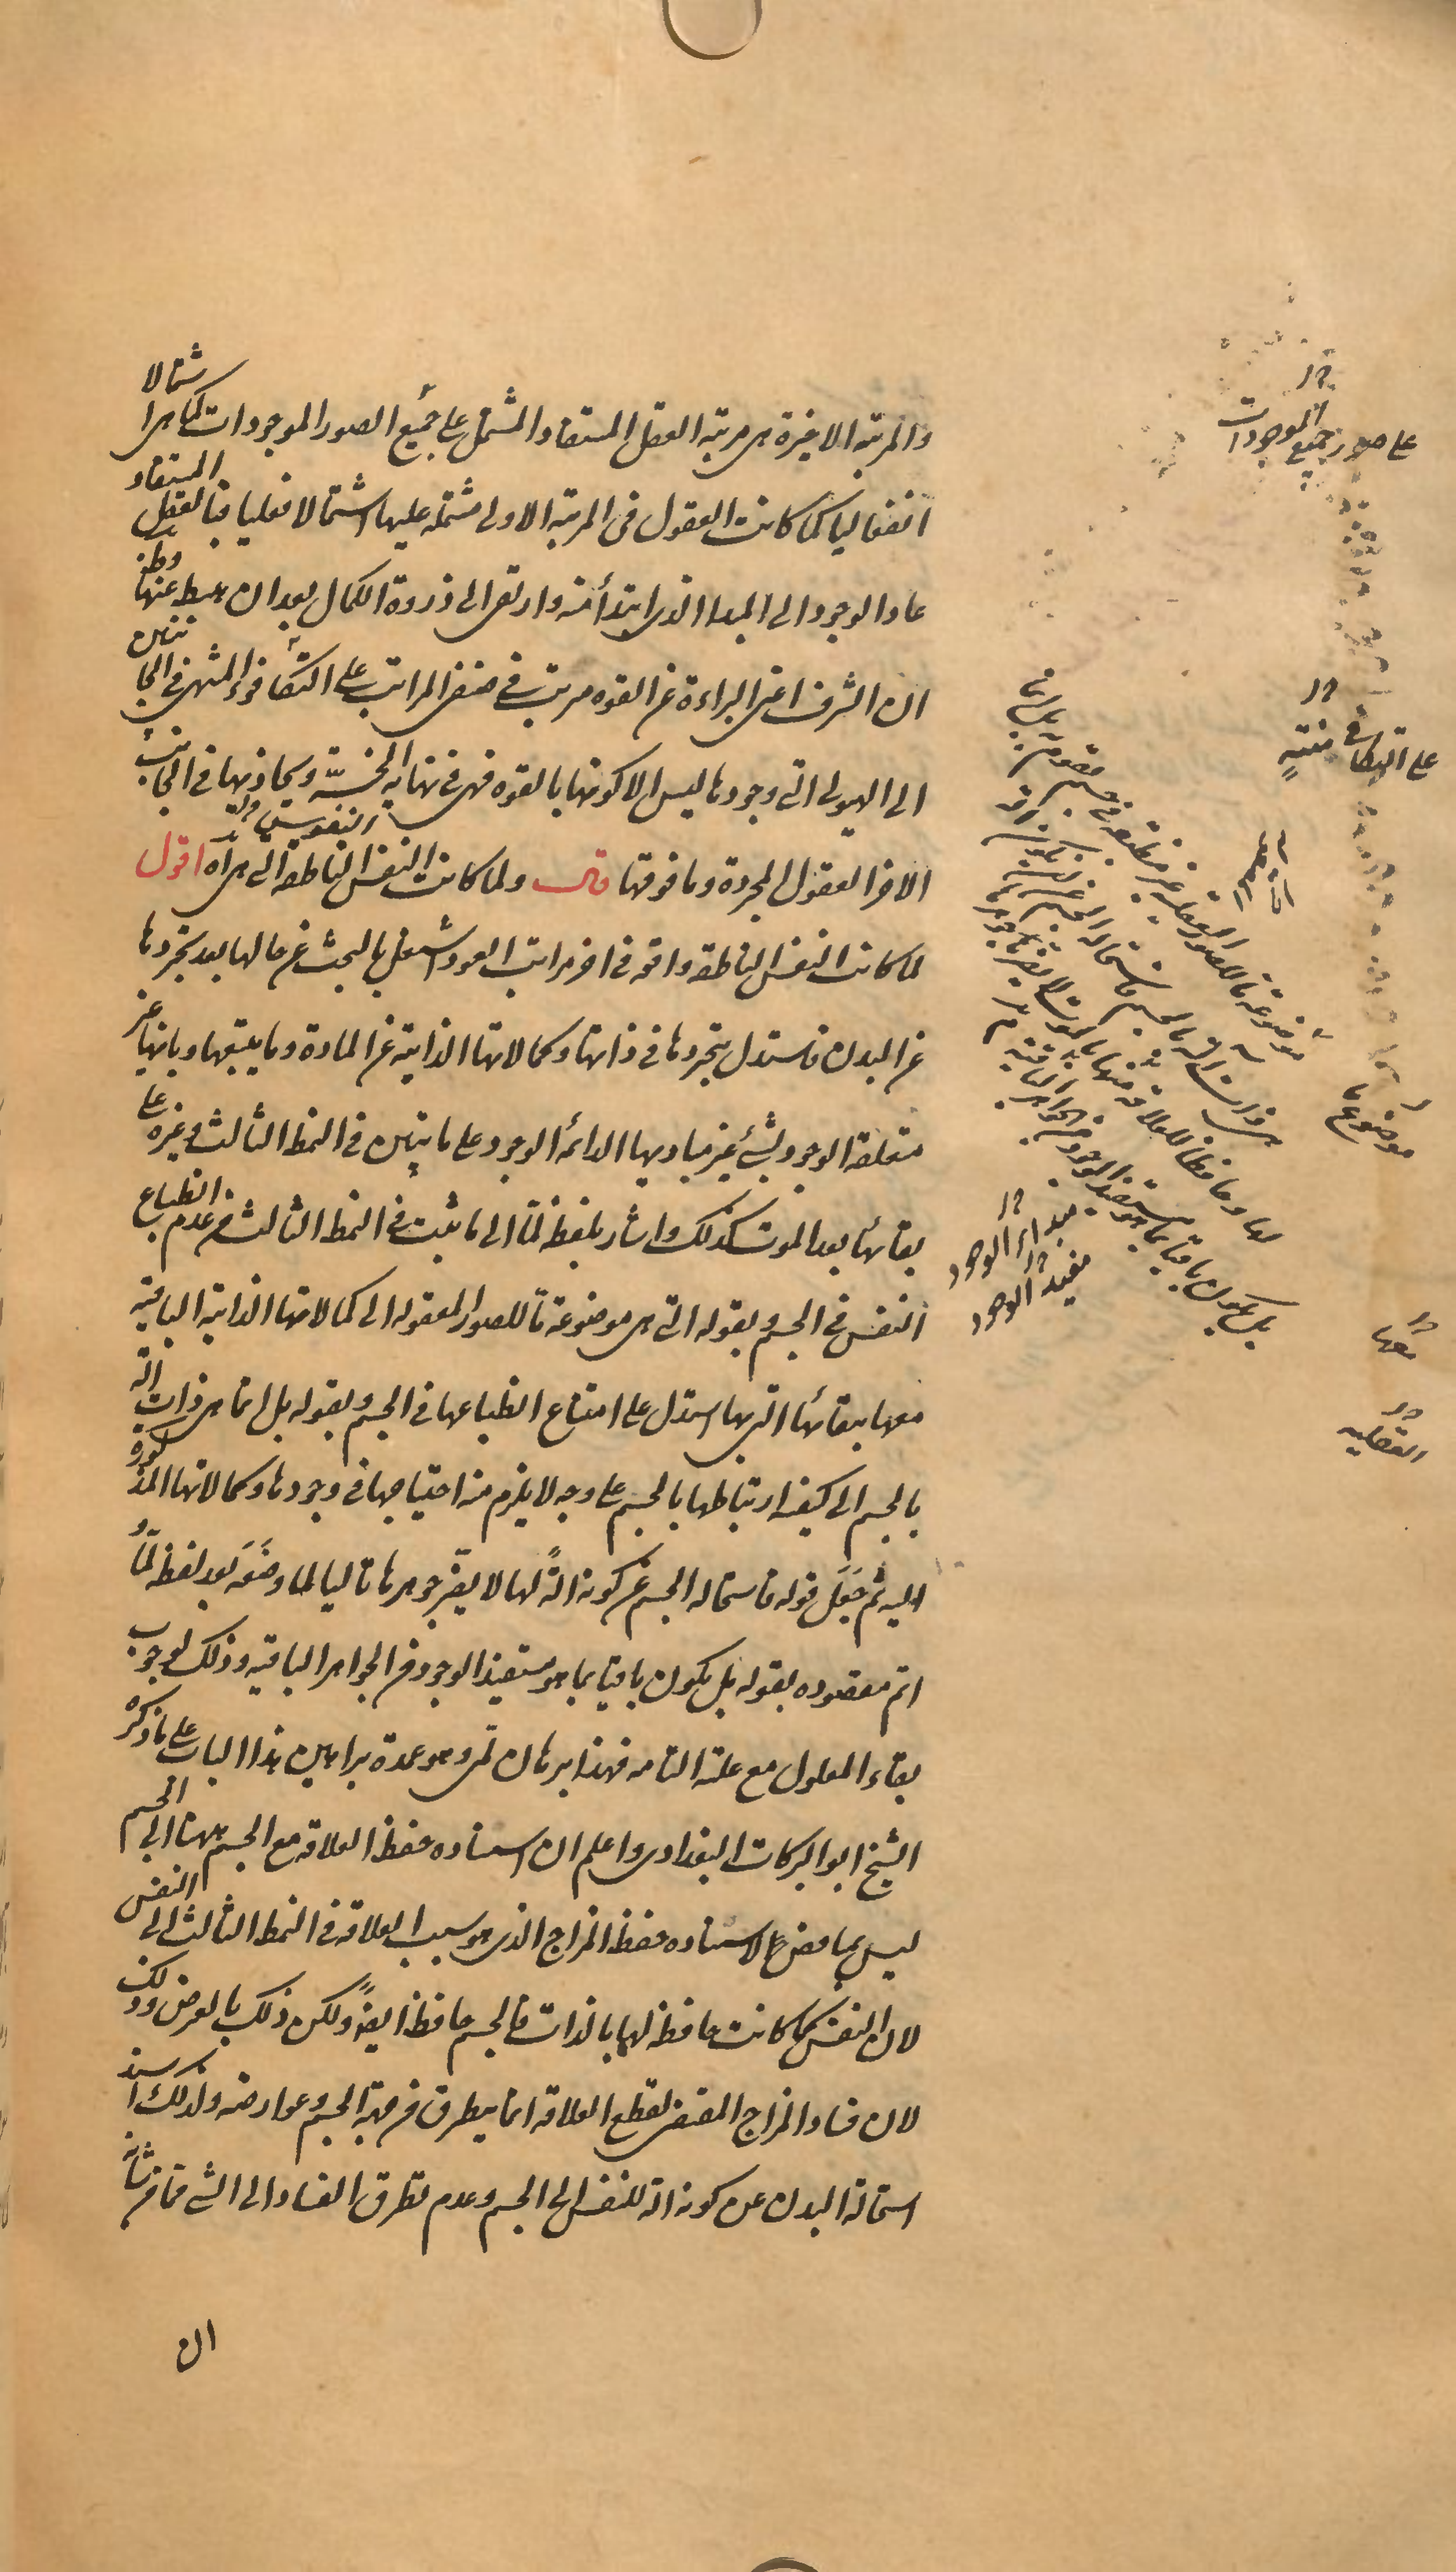 والمرتبة الاخيرة هى مرتبة العقل المستفاد المشتمل على جميع الصور الموجودات كما هى اشتمالا
انفعاليا كما كانت العقول فى المرتبة الاولى مشتملة عليها اشتمالا فعليا فبالعقل المستفاد
عاد الوجود الى المبدا الذى ابتدأ منه وارتقى الى ذروة الكمال بعد ان هبط عنها وظهر
ان الشرف اعنى البراءة عن القوه مرتب فى صنفى المراتب على التكافؤ المنتهى فى الجانبين
الى الهيولى التى وجودها ليس الا كونها بالقوه فهى فى نهاية الخسّة ويحاذيها فى الجانب
الاخر العقول المجردة وما فوقها قال ولما كانت النفس الناطقه التى هى آه اقول
لما كانت النفس الناطقه واقعه فى اخر مراتب العود اشتغل بالبحث عن حالها بعد تجردها
عن البدن فاستدل بتجردها فى ذاتها وكمالاتها الذاتية عن المادة وما يتبعها وبانها غير
متعلقة الوجود بشئ غير مباديها الدائمه الوجود على ما تبين فى النمط الثالث وغيره على
بقائها بعد الموت كذلك واشار بلفظة لمّا الى ما ثبت فى النمط الثالث من عدم انطباع
النفس فى الجسم وبقوله التى هى موضوعة ما للصور المعقوله الى كمالاتها الذاتية الباقيه
معها ببقائها التى بها استدل على امتناع انطباعها فى الجسم وبقوله بل انما هى ذات آلة
بالجسم الى كيفية ارتباطها بالجسم على وجه لا يلزم منه احتياجها فى وجودها وكمالاتها المذكورة
اليه ثم جَعَلَ قوله فاستحالة الجسم عن كونه آلةً لها لا يضرّ جوهرها تاليا لما وضَعَه بعد لفظة لمّا و
اتم مقصوده بقوله بل يكون باقيا بما هو مستفيد الوجود من الجواهر الباقيه وذلك لوجوب
بقاء المعلول مع علته التامه فهذا برهان لمّى وهو عمدة براهين هذا الباب على ما ذكره
الشيخ ابو البركات البغدادى واعلم ان اسناده حفظ العلاقه مع الجسم ههنا الى الجسم
ليس بمناقض لاسناده حفظ المزاج الذى هو سبب العلاقه فى النمط الثالث الى النفس
لان النفس كما كانت حافظة لها بالذات فالجسم حافظ ايضًا ولكن ذلك بالعرض وذلك
لان فساد المزاج المقتضى لقطع العلاقه انما يتطرق من جهة الجسم وعوارضه ولذلك اسند
استحالة البدن عن كونه آلة للنفس الى الجسم وعدم تطرق الفساد الى الشئ مما من شانه
ان
على صور جميع الموجودات
على التكافى منتهٍ
موضوعة ما للصور المعقولة غير منطبعة فى جسم تقوم به بل انما
هى ذات آلة بالجسم فاستحالة الجسم عن ان يكون آلة
لها وحافظا للعلاقة معها بالموت لا يضر جوهرها
بل يكون باقيا بما هو مستفيد الوجود من الجواهر الباقية
موضوع ما
مبداء الوجود
مفيد الوجود
معها
العقليه